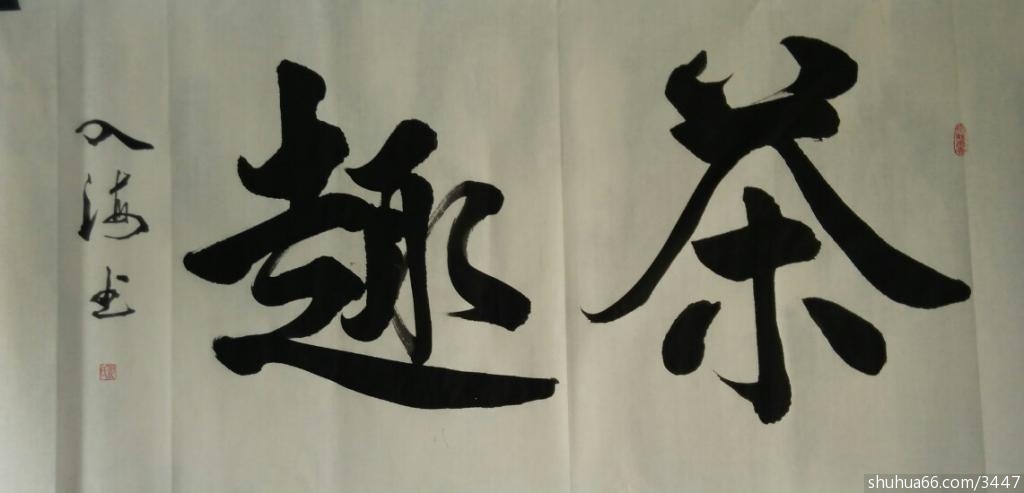 茶趣
入海书
shuhua66.com/3447